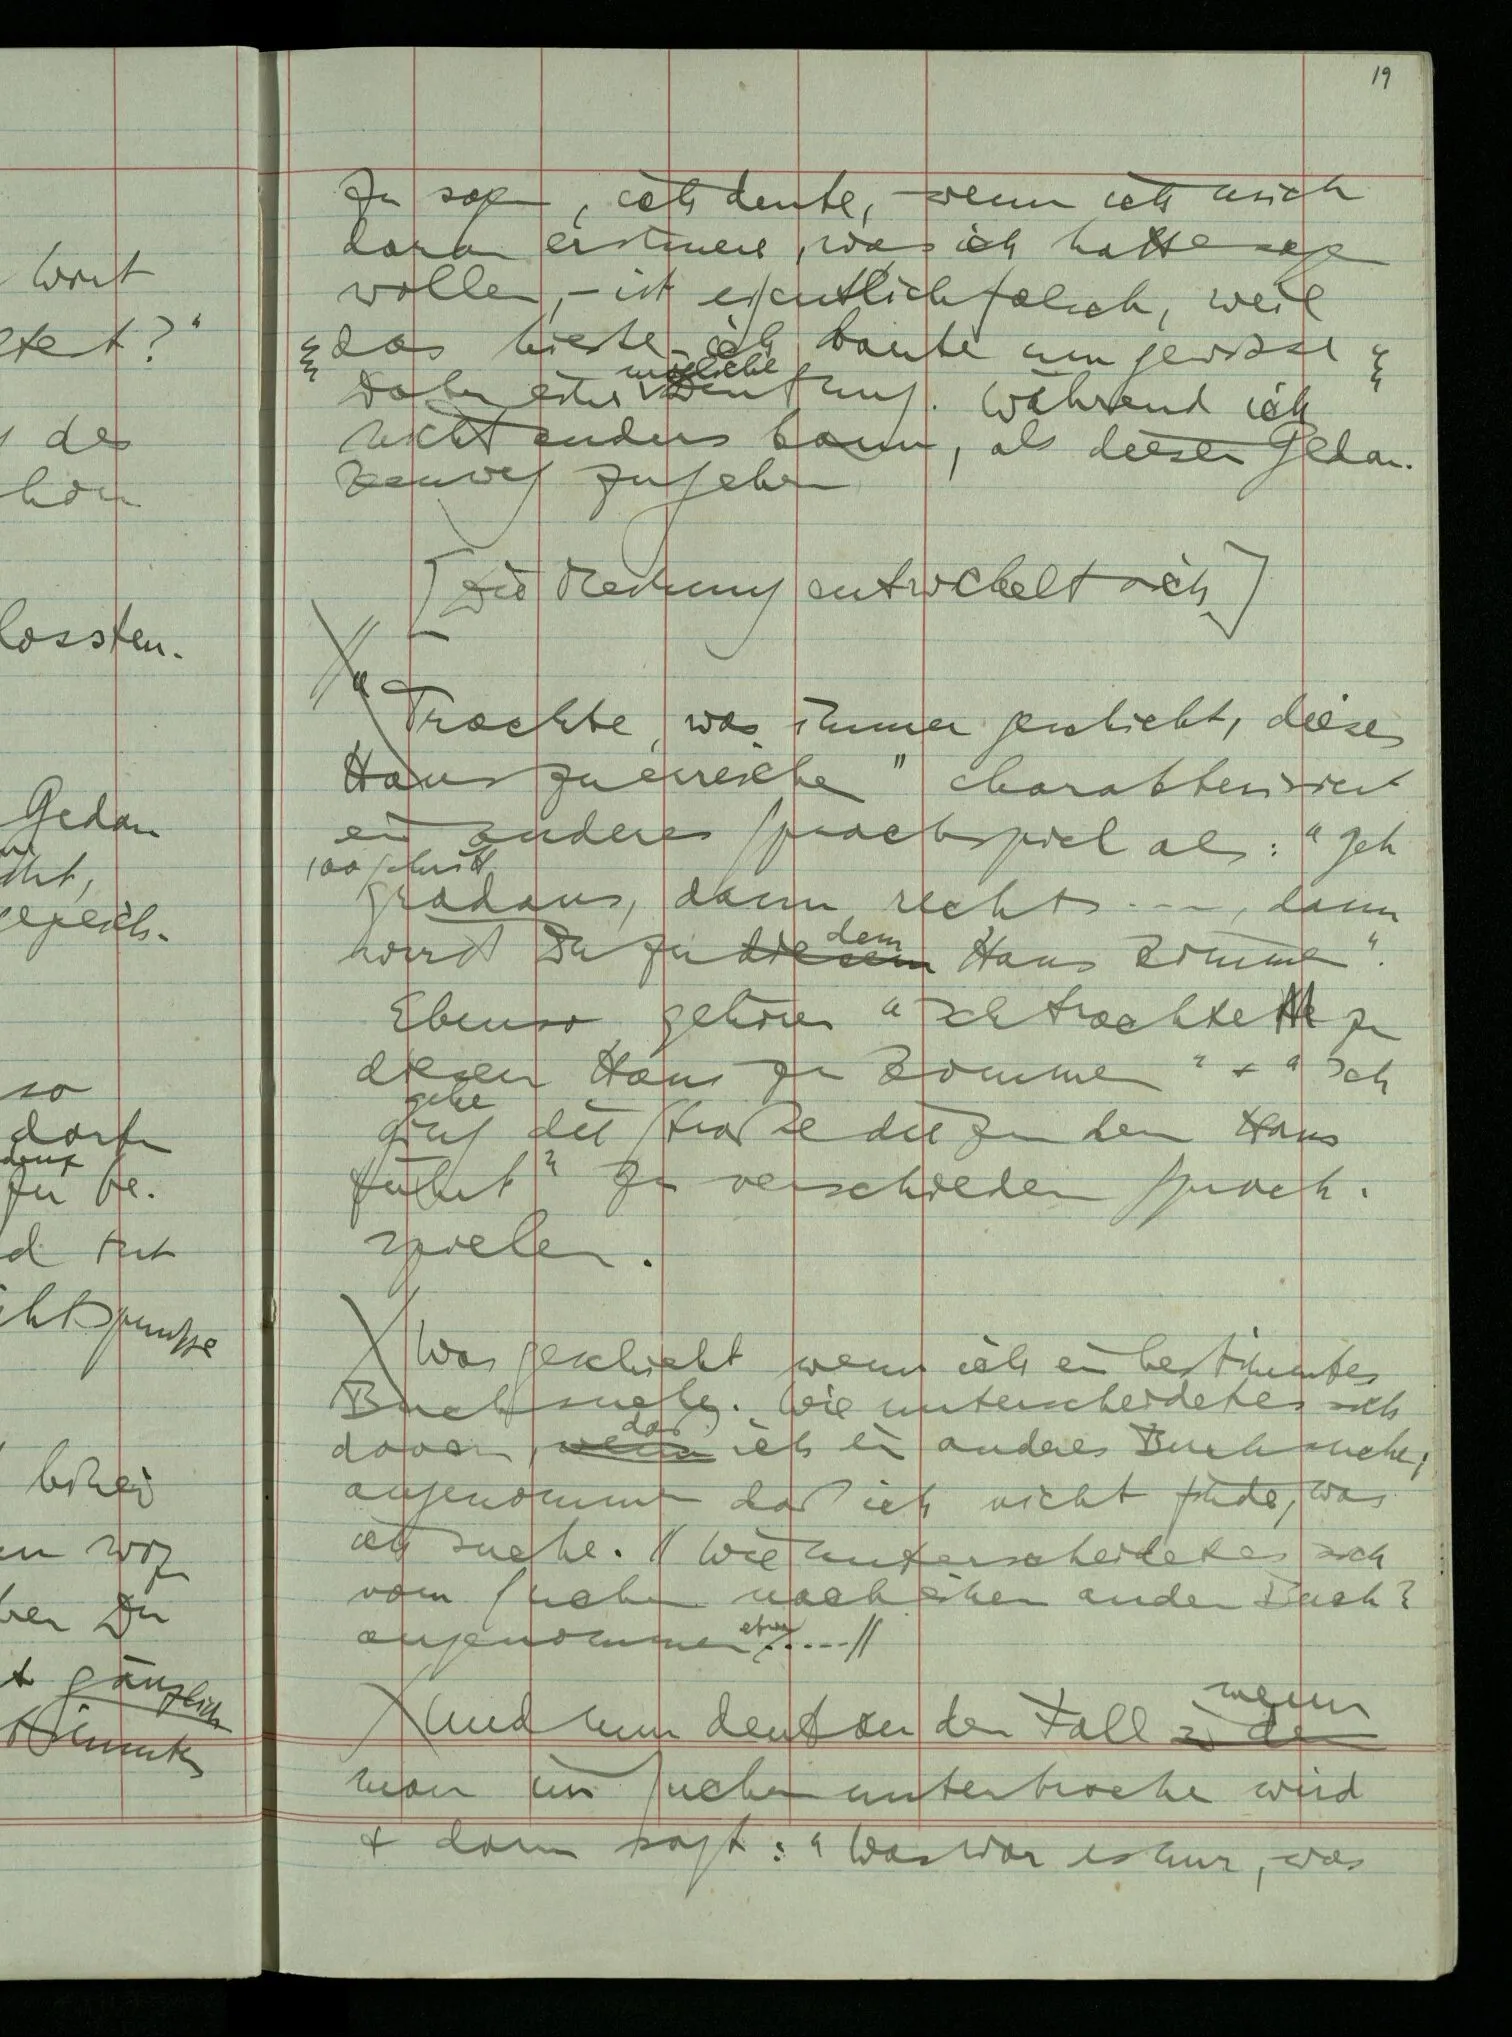 19
Zu sagen, ich deute, wenn ich mich
daran erinnere, was ich hatte sagen
wollen, – ist eigentlich falsch, weil
das hieße ich kannte nun gewisse
mögliche
Daten einer Deutung. Während ich
nicht anders kann, als diesen Gedan-
kenweg zu gehen
[Die Meinung entwickelt sich]
// "Trachte, was immer geschieht, dieses
Haus zu erreichen" charakterisiert
ein anderes Sprachspiel als: "Geh
100 Schritt
gradaus, dann rechts ---, dann
dem
wirst Du zu diesem Haus kommen".
Ebenso gehören "Ich trachte zu
diesem Haus zu kommen" + "Ich
gehe
ging die Straße die zu dem Haus
führt" zu verschiedenen Sprach-
spielen.
Was geschieht wenn ich ein bestimmtes
Buch suche. Wie unterscheidet es sich
daß
davon, wenn ich ein anderes Buch suche,
angenommen daß ich nicht finde, was
ich suche. // Wie unterscheidet es sich
vom Suchen nach einem andern Buch?
etwa
angenommen .....//
wenn
Und nun denk an den Fall in dem
man im Suchen unterbrochen wird
+ dann sagt: "Was war es nur, was
wort
des
schon
Gedan
so
dorten
zu be-
d tut
gänzlich